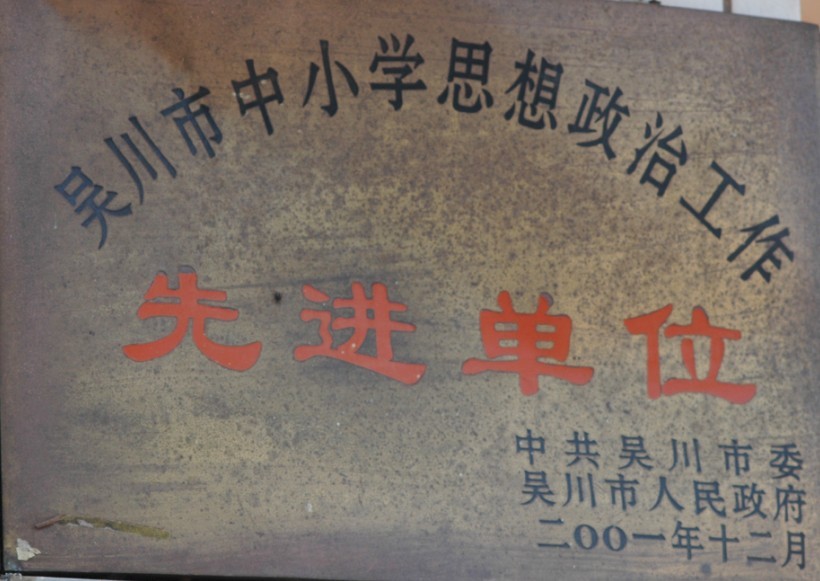 吴川市中小学思想政治工作
先进单位
中共吴川市委
吴川市人民政府
二OO一年十二月